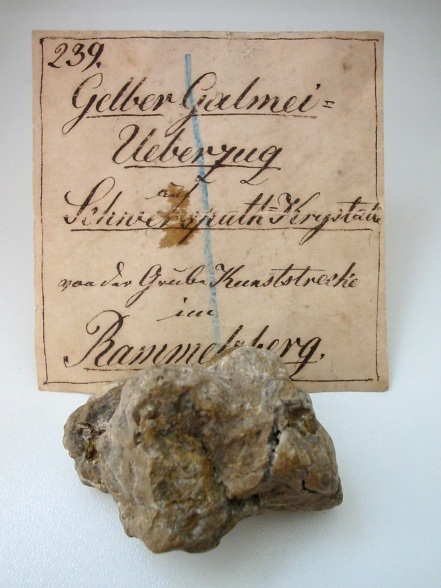 239.
Gelber Galmei=
Ueberzug
auf
Schwerspath=Krystall
von der Grube Kunststrecke
im
Rammelsberg.